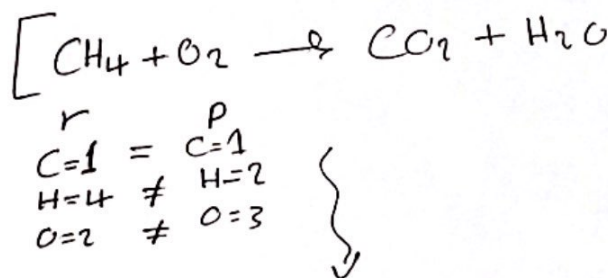 [CH4 + O2 → CO2 + H2O
r p
C=1 = C=1
H=4 ≠ H=2
O=2 ≠ O=3